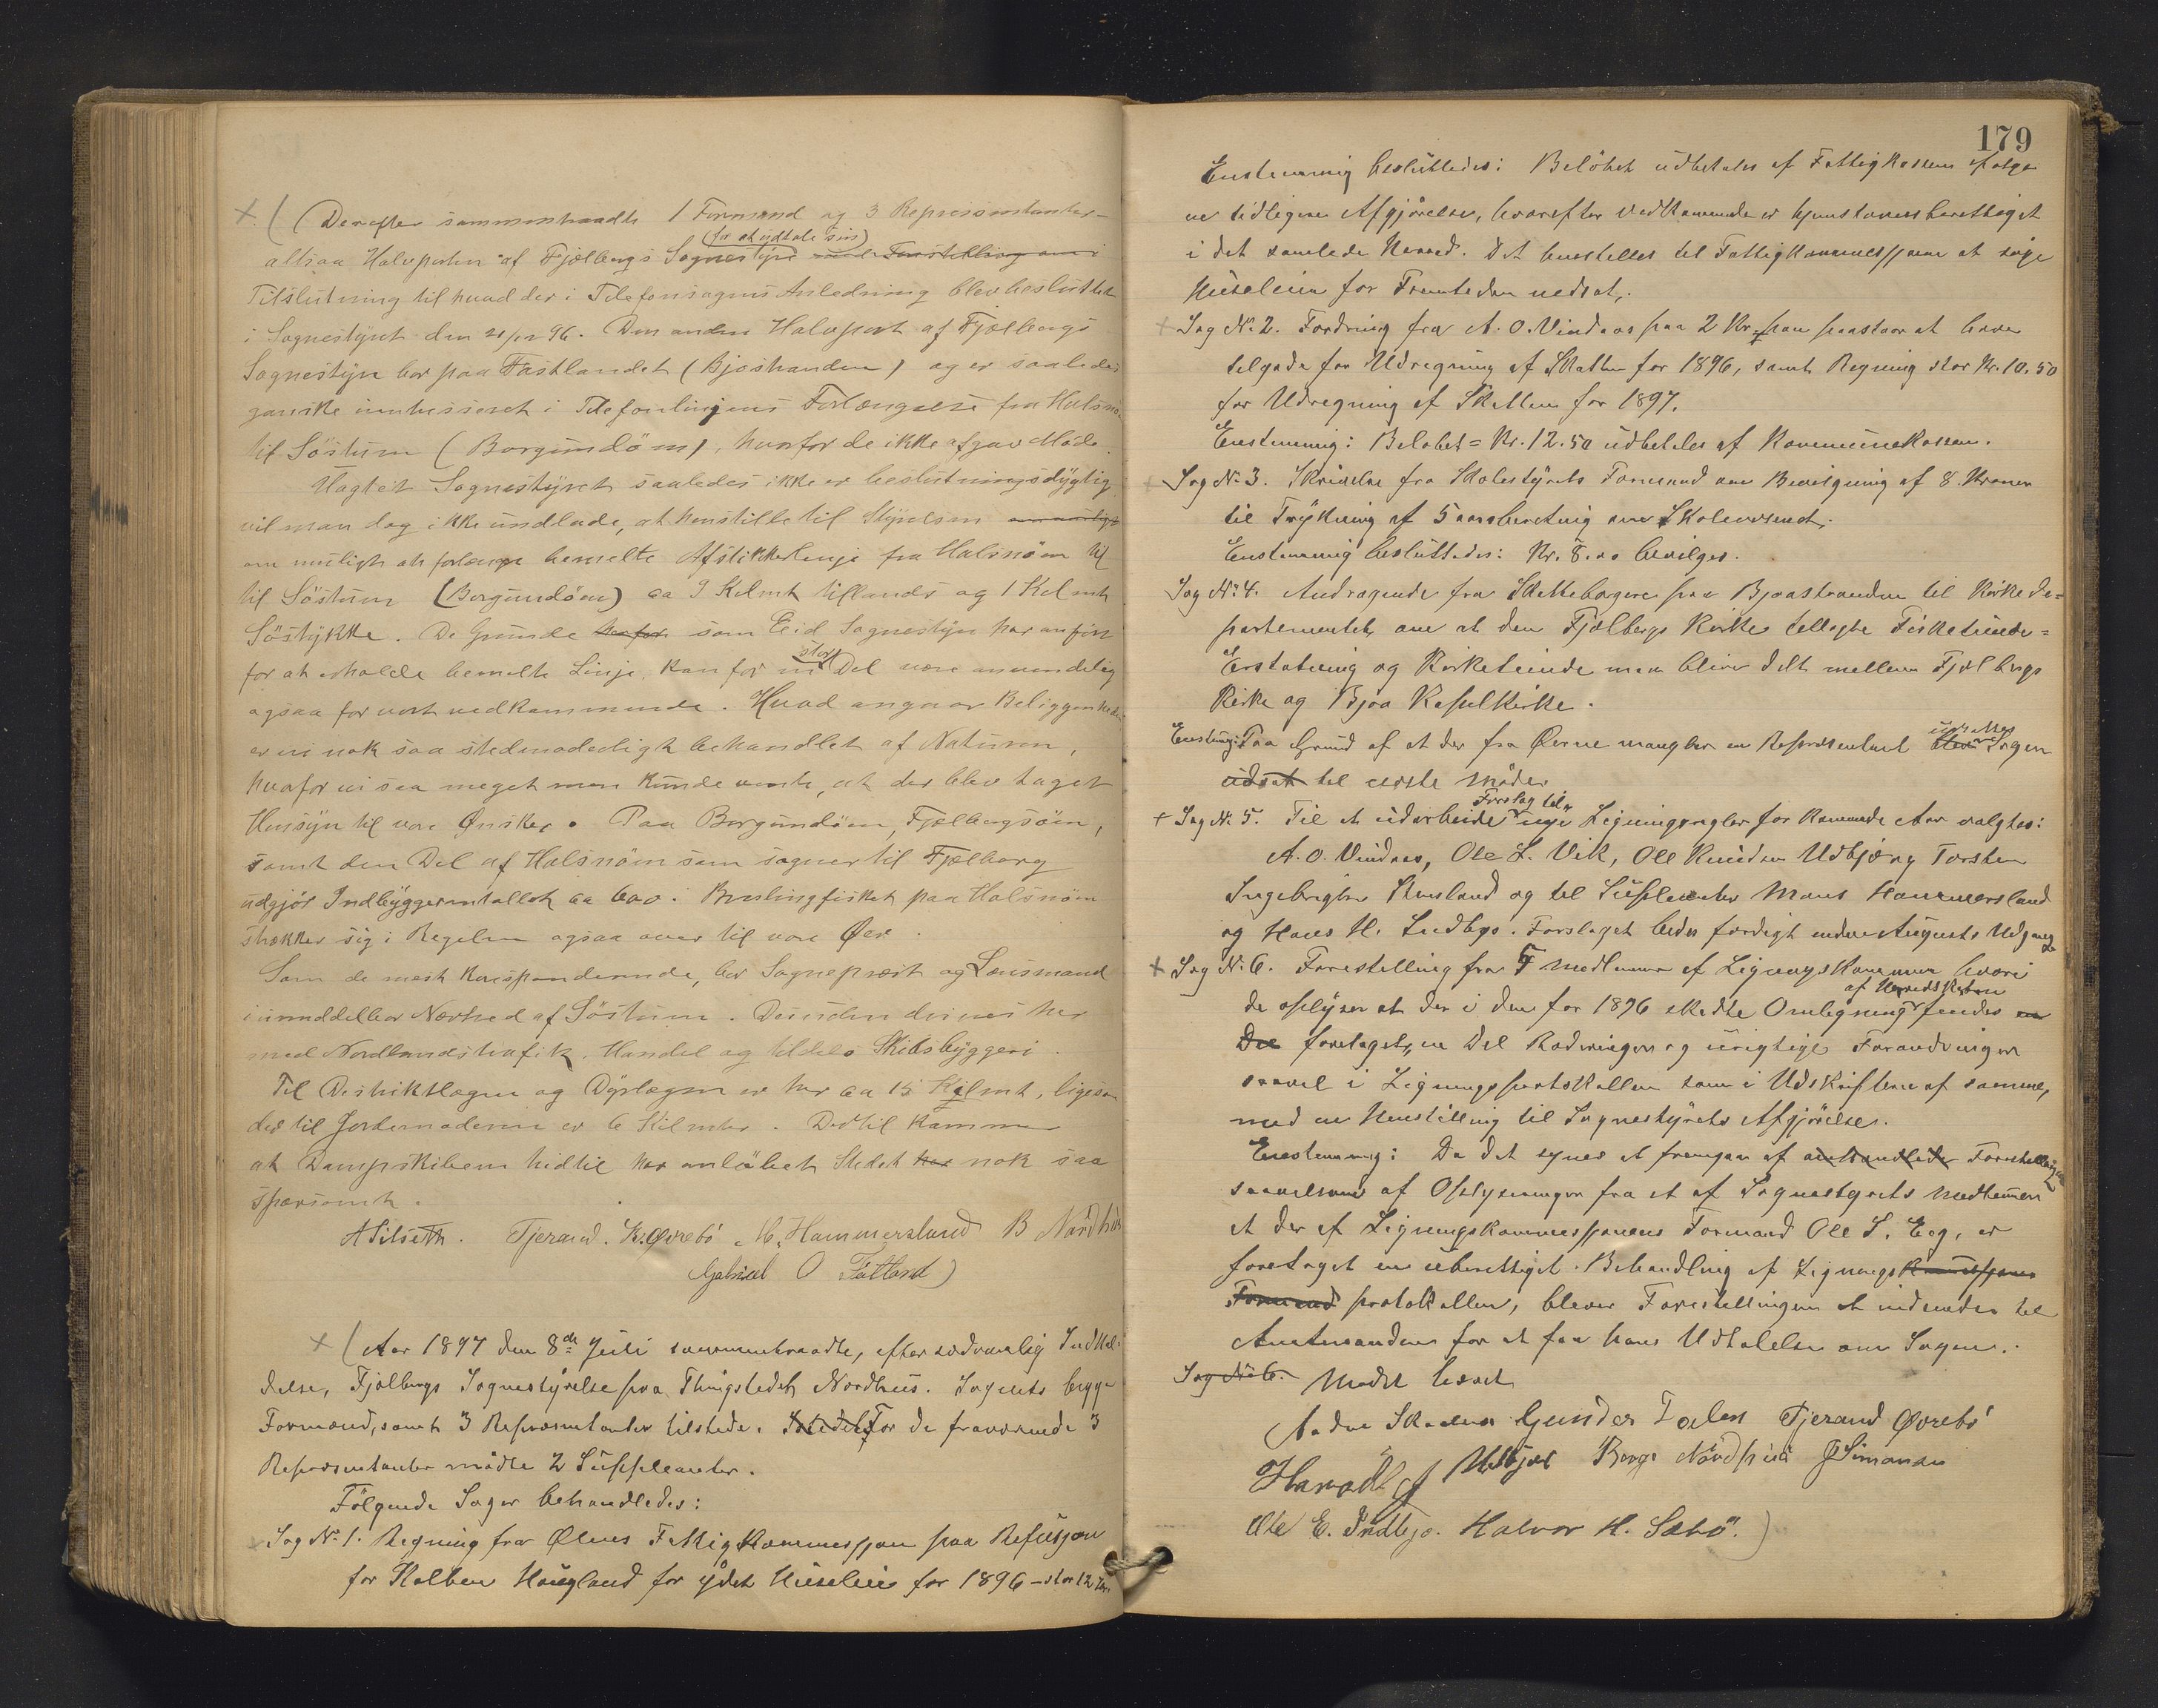 + ( Derefter sammentraadte 1 Formand og 3 Repræsentanter-
altsaa Halvparten af Fjælbergs Sognestyre (for at udtale sin) med Forestilling om i
Tilslutning til hvad der i Telefonsagens Anledning blev besluttet
i Sognestyret den 21/12 96. Den anden Halvpart af Fjælbergs
Sognestyre bor paa Fastlandet (Bjostranden) og er saaledes
ganske uintresseret i Telefonlinjens Forlængelse fra Halsnø
til Söstum (Borgundöen), hvorfor de ikke afgav Møde.
Uagtet Sognestyret saaledes ikke er beslutningsdygtig
vil man dog ikke undlade, at henstille til Styrelsen om muligt
om muligt at forlænge bemelte Afstikkerlinje fra Halsnöen til
til Söstum (Borgundöen) ca 9 Kilmt tillands og 1 Kilmt
Söstykke. De Grunde herfor som Eid Sognestyre har anført
for at erholde bemelte Linje, kan for en stor Del være anvendelig
ogsaa for vort vedkommende. Hvad angaar Beliggenheden
er vi nok saa stedmoderligt behandlet af Naturen,
hvorfor vi saa meget mere kunde vente, at der blev taget
Hensyn til vore Ønsker. Paa Borgundöen, Fjælbergsöen,
samt den Del af Halsnöen som sogner til Fjælberg
udgjör Indbyggerantallet ca 600. Brislingfisket paa Halsnöen
strækker sig i Regelen ogsaa over til vore Øer.
Som de mest korrespondernde, bor Sogneprest og Lensmand
i umiddelbar Nærhed af Söstum. Desuden drives her
med Nordlandstrafik, Handel og tildels Skibsbyggeri.
Til Distriktlægen og Dyrlægen er her ca 15 Kilmt, ligesaa
des til Jordemoderen er 6 Kilmter. Dertil kommer
at Dampskibene hidtil har anløbet Stedet har nok saa
sparsomt.
A Silseth. Tjerand. K. Øvrebö M. Hammersland B Nordhus
Gabriel O Fatland)
+ (Aar 1897 den 8de Juli sammentraadte, efter sedvanlig Indkal-
delse, Fjælbergs Sognestyrelse paa Thingstedet Nordhus. Sognets begge
Formænd, samt 3 Repræsentanter tilstede. Istedet For de fraværende 3
Repræsentanter mödte 2 Suppleanter.
Fölgende Sager behandledes:
Sag No 1. Regning fra Ølens Fattigkommission paa Refusjon
for Kolben Haugland for ydet Huseleie for 1896 – stor 12 Kr.
179
Enstemmig besluttedes: Belöbet udbetales af Fattigkassen ifølge
en tidligere Afgjörelse, hvorefter vedkommende er hjemstavnsberettiget
i det samlede Herred. Det henstilles til Fattigkommissjonen at söge
Huseleien for Fremtiden nedsat.
+ Sag No 2. Fordring fra A. O. Vindnes paa 2 Kr, han paastaar at have
tilgode for Udregning af Skatten for 1896, samt Regning stor Kr. 10.50
for Udregning af Skatten for 1897.
Enstemmig: Belobet = Kr. 12.50 udbetales af Kommunekassen.
+ Sag No 3. Skrivelse fra Skolestyrets Formand om Bevilgning af 8 Kroner
til Trykning af 5 aarsberetnig om Skolevesenet.
Enstemmig besluttedes: Kr. 8.00 bevilges.
Sag No 4. Andragende fra Skatteborgere paa Bjoastranden til Kirkede=
partementet om at den Fjælbergs Kirke tillagte Fisketiende=
Erstatning og Kirketiende maa blive delt mellem Fjælbergs
Kirke og Bjoa Kapelkirke.
Enstemig: Paa Grund af at der fra Øerne mangler en Repræsentant blev udsættes Sagen
udsat til næste Møde.
+ Sag No 5. Til at udarbeide Forslag til nye Ligningsregler for kommende Aar valgtes:
A. O. Vindnes, Ole L. Vik, Ole Knudsen Udbjørg Torsten
Ingebrigtsen Skeisland og til Suplenter Mons Hammersland
og Hans H. Indbjo. Forslaget bedes færdigt inden Augusts Udgang
+ Sag No 6. Forestilling fra 5 medlemmer af Ligningskommissionen hvori
de oplyser at der i den for 1896 skedte Omligning af Herredskatten findes en
Del foretaget, en Del Raderinger og urigtige Forandringer
saavel i Ligningsprotokollen som i Udskriften af samme,
med en Henstilling til Sognestyrets Afgjörelse.
Enstemmig: Da det synes at fremgaa af Forestillingen
saavelsom af Oplysninger fra et af Sognestyrets medlemer
at der af Ligningskommissjonens Formand Ole S. Eeg, er
foretaget en uberettiget Behandling af Lignings kommissjons
Formand protokollen, bliver Forestillingen at indsende til
Amtmanden for at faa hans Udtalelse om Sagen.
Sag No 6. Mødet hævet
Gunder Dalen Tjerand Øvrebö
Udbjør Børge Nordhus J Simonsen
Ole E. Indbjo. Halvor H. Sæbö.)